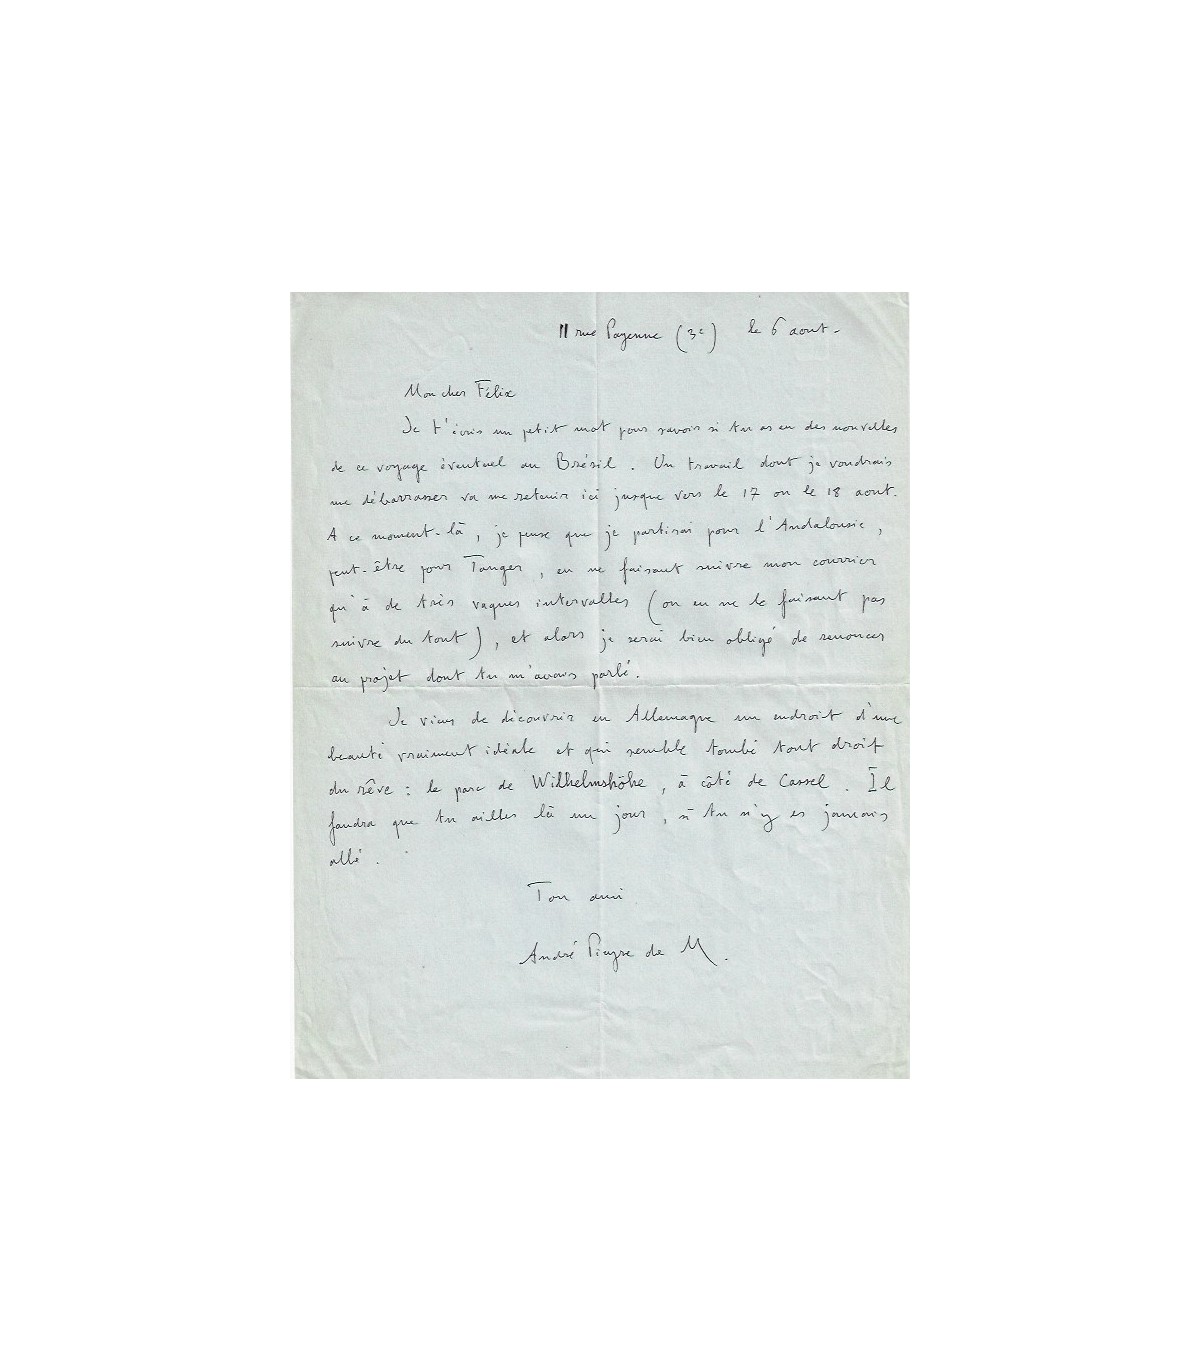 11 rue Payenne (3e) le 6 aout -
Mon cher Félix
Je t'écris un petit mot pour savoir si tu as eu des nouvelles
de ce voyage éventuel au Brésil. Un travail dont je voudrais
me débarrasser va me retenir ici jusque vers le 17 ou le 18 aout.
A ce moment-là, je pense que je partirai pour l'Andalousie,
peut-être pour Tanger, en ne faisant suivre mon courrier
qu'à de très vagues intervalles (ou en ne le faisant pas
suivre du tout), et alors je serai bien obligé de renoncer
au projet dont tu m'avais parlé.
Je viens de découvrir en Allemagne un endroit d'une
beauté vraiment idéale et qui semble tombé tout droit
du rêve : le parc de Wilhelmshöhe, à côté de Cassel. Il
faudra que tu ailles là un jour, si tu n'y es jamais
allé.
Ton ami
André Pieyre de M.